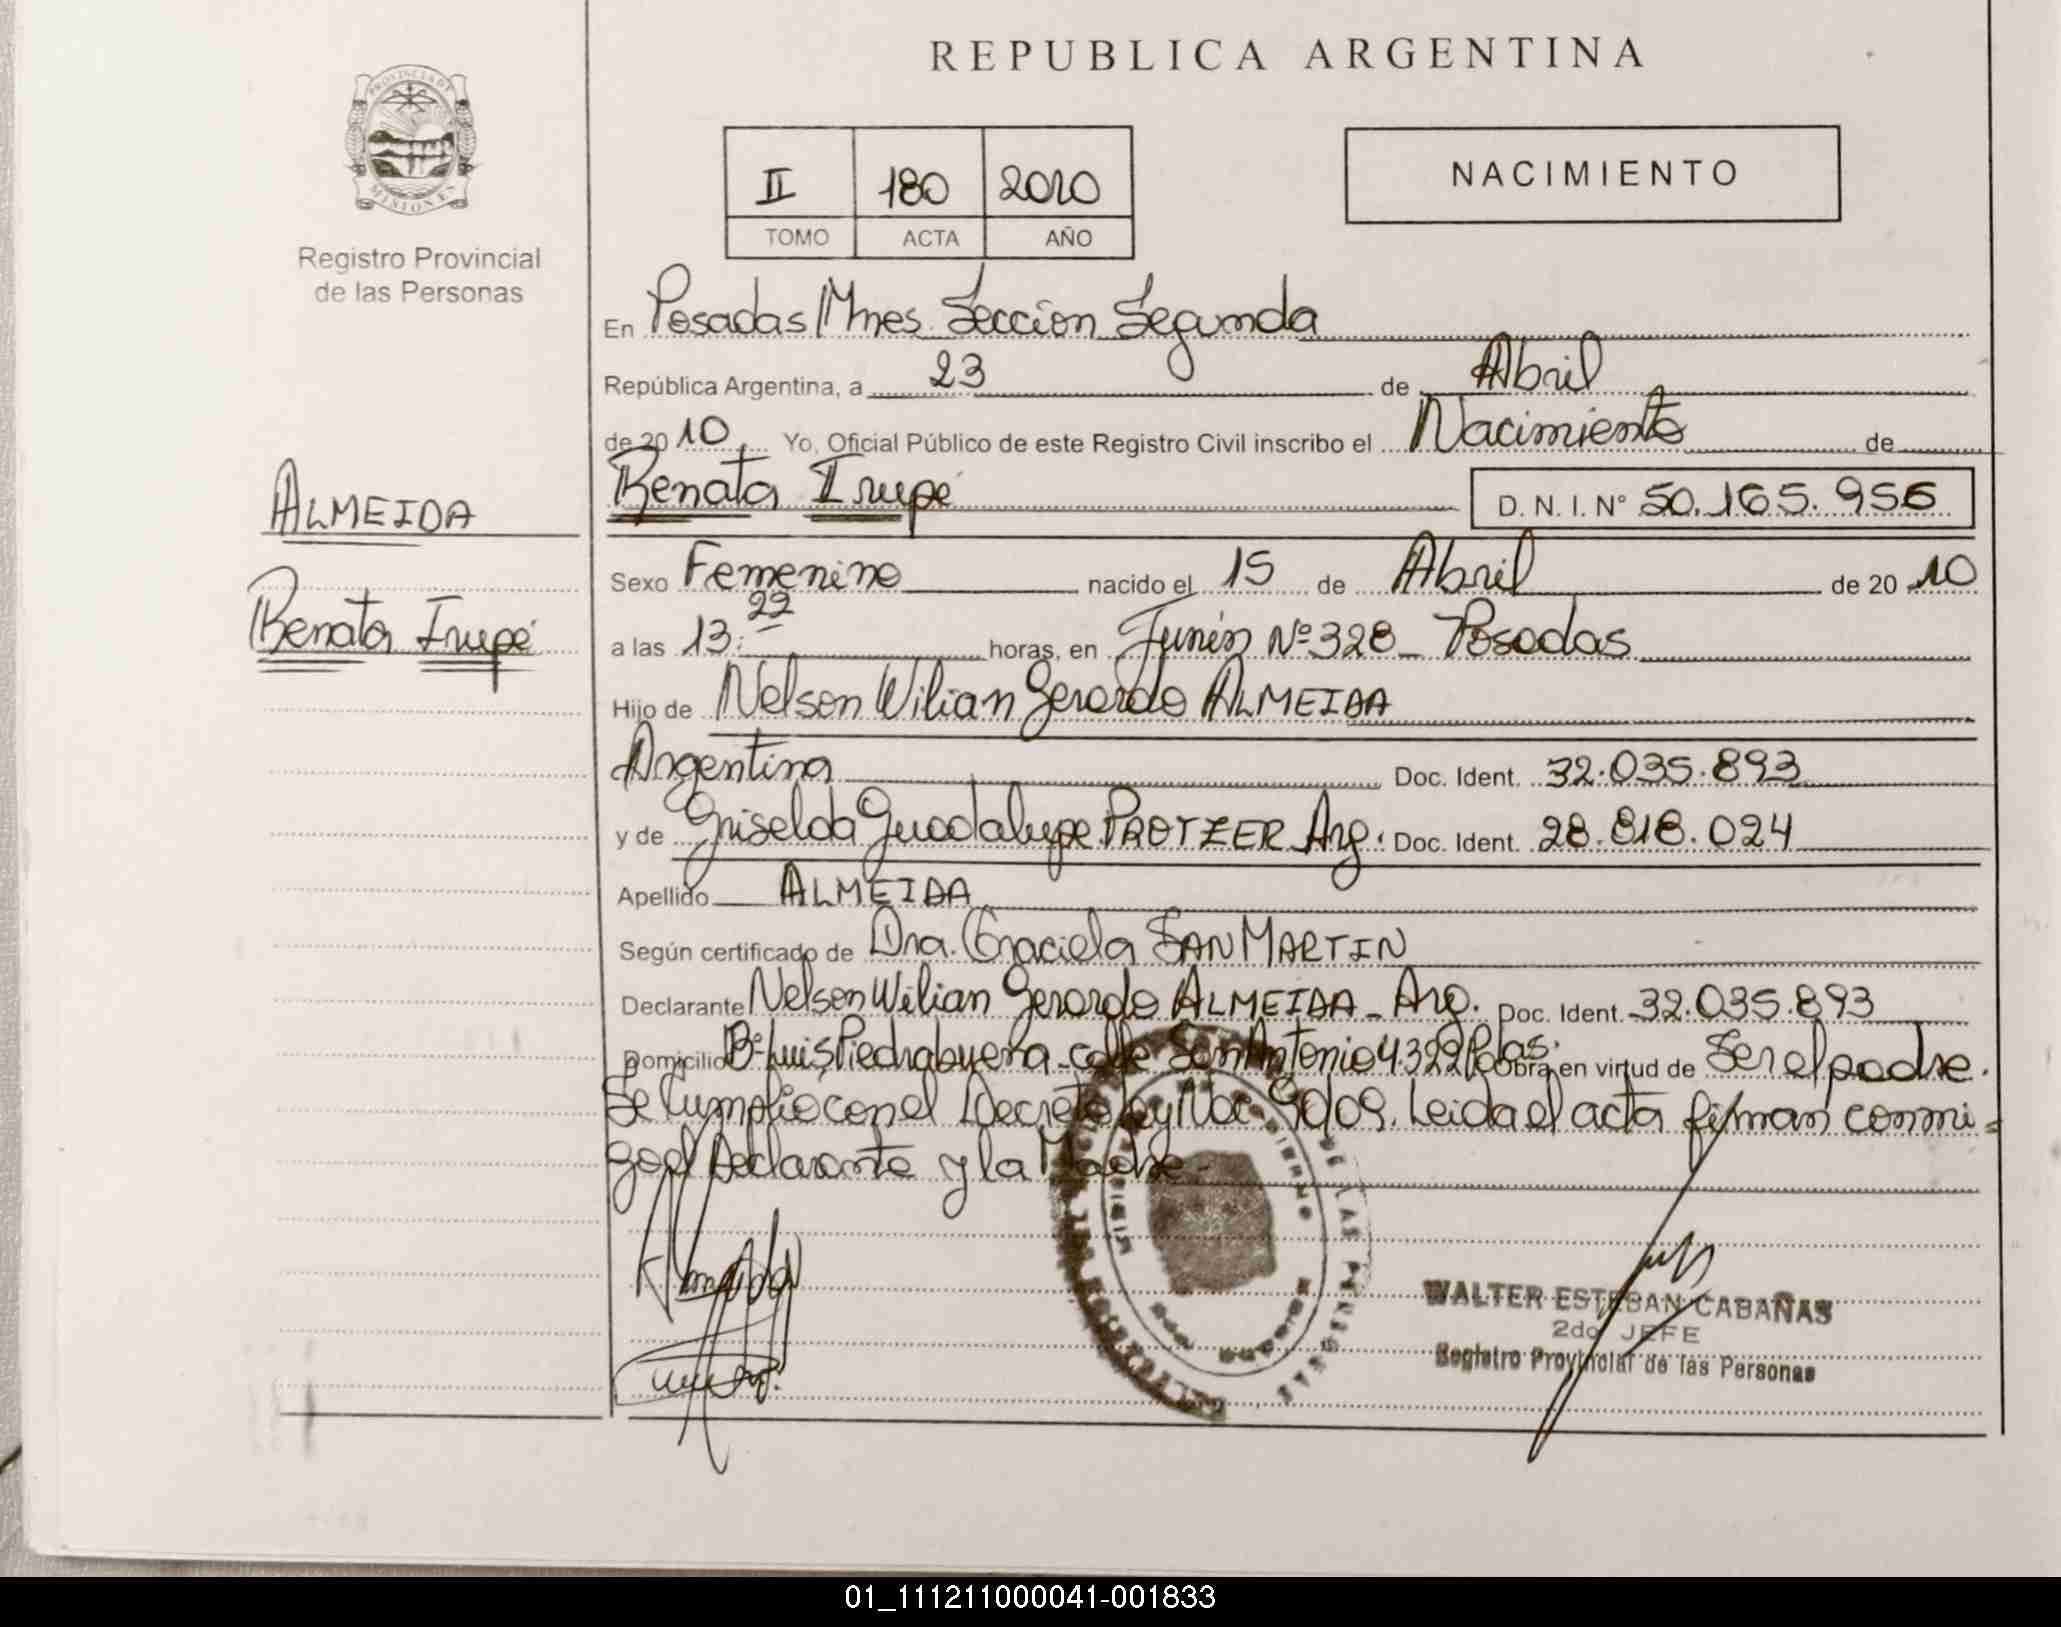 REPUBLICA ARGENTINA
PROVINCIA DE
MISIONES
Registro Provincial
de las Personas
II 180 2010
TOMO ACTA AÑO
NACIMIENTO
En Posadas/Mnes. Sección Segunda
República Argentina, a 23 de Abril
de 2010 Yo, Oficial Público de este Registro Civil inscribo el Nacimiento de
ALMEIDA
Renata Irupé
Renata Irupé D. N. I. N° 50.165.956
Sexo Femenino nacido el 15 de Abril de 2010
a las 13:22 horas, en Junín Nº 328 - Posadas
Hijo de Nelson Wilian Gerardo ALMEIDA
Argentina Doc. Ident. 32.035.893
y de Griselda Guadalupe PROTZER Arg. Doc. Ident. 28.818.024
Apellido ALMEIDA
Según certificado de Dra. Graciela SAN MARTIN
Declarante Nelson Wilian Gerardo ALMEIDA - Arg. Doc. Ident. 32.035.893
Domicilio Bº Luis Piedrabuena - calle San Antonio 4322 Pdas. Obra en virtud de Ser el padre.
Se cumplio con el Decreto Ley Nac. 9009. Leida el acta firman conmi-
go el Declarante y la Madre.-
WALTER ESTEBAN CABAÑAS
2do JEFE
Registro Provincial de las Personas
DE LAS PERSONAS
01_111211000041-001833